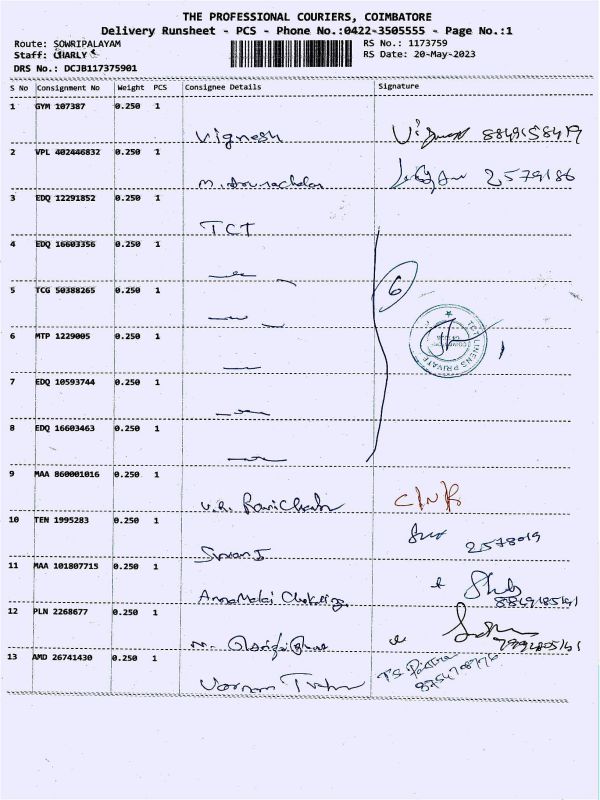 THE PROFESSIONAL COURIERS, COIMBATORE
Delivery Runsheet - PCS - Phone No.:0422-3505555 - Page No.:1
Route: SOWRIPALAYAM RS No.: 1173759
Staff: CHARLY RS Date: 20-May-2023
DRS No.: DCJB117375901
S No Consignment No Weight PCS Consignee Details Signature
1 GYM 107387 0.250 1
Vignesh 8849158419
2 VPL 402446832 0.250 1
2579186
3 EDQ 12291852 0.250 1
TCT
4 EDQ 16603356 0.250 1
5 TCG 50388265 0.250 1
6
6 MTP 1229005 0.250 1
7 EDQ 10593744 0.250 1
8 EDQ 16603463 0.250 1
9 MAA 860001016 0.250 1
C/N/R
10 TEN 1995283 0.250 1
2578019
11 MAA 101807715 0.250 1
12 PLN 2268677 0.250 1
13 AMD 26741430 0.250 1